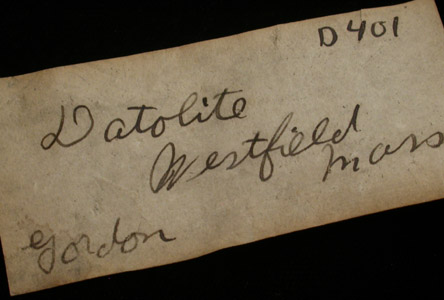 D401
Datolite
Westfield
Mass
Gordon